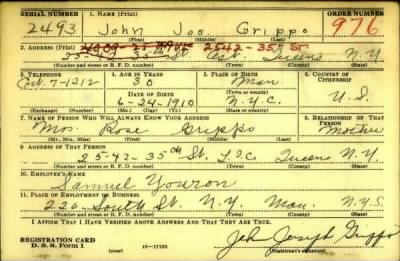 SERIAL NUMBER 1. NAME (Print) ORDER NUMBER
2493 John Jos. Grippo 976
(First) (Middle) (Last)
2. ADDRESS (Print)
2542-35th St. Queens N.Y
(Number and street or R. F. D. number) (Town) (County) (State)
3. TELEPHONE 4. AGE IN YEARS 5. PLACE OF BIRTH 6. COUNTRY OF CITIZENSHIP
7-1212 30 Man.
DATE OF BIRTH (Town or county)
6-24-1910 N.Y.C. U.S.
(Exchange) (Number) (Mo.) (Day) (Yr.) (State or country)
7. NAME OF PERSON WHO WILL ALWAYS KNOW YOUR ADDRESS 8. RELATIONSHIP OF THAT PERSON
Mrs Rose Grippo Mother
(Mr., Mrs., Miss) (First) (Middle) (Last)
9. ADDRESS OF THAT PERSON
25-42-35th St. L.I.C. Queens N.Y.
(Number and street or R. F. D. number) (Town) (County) (State)
10. EMPLOYER'S NAME
Samuel
11. PLACE OF EMPLOYMENT OR BUSINESS
220-South St. N.Y. Man. N.Y.S.
(Number and street or R. F. D. number) (Town) (County) (State)
I AFFIRM THAT I HAVE VERIFIED ABOVE ANSWERS AND THAT THEY ARE TRUE.
REGISTRATION CARD
D. S. S. Form 1 (over) 16-17105 John Joseph Grippo
(Registrant's signature)